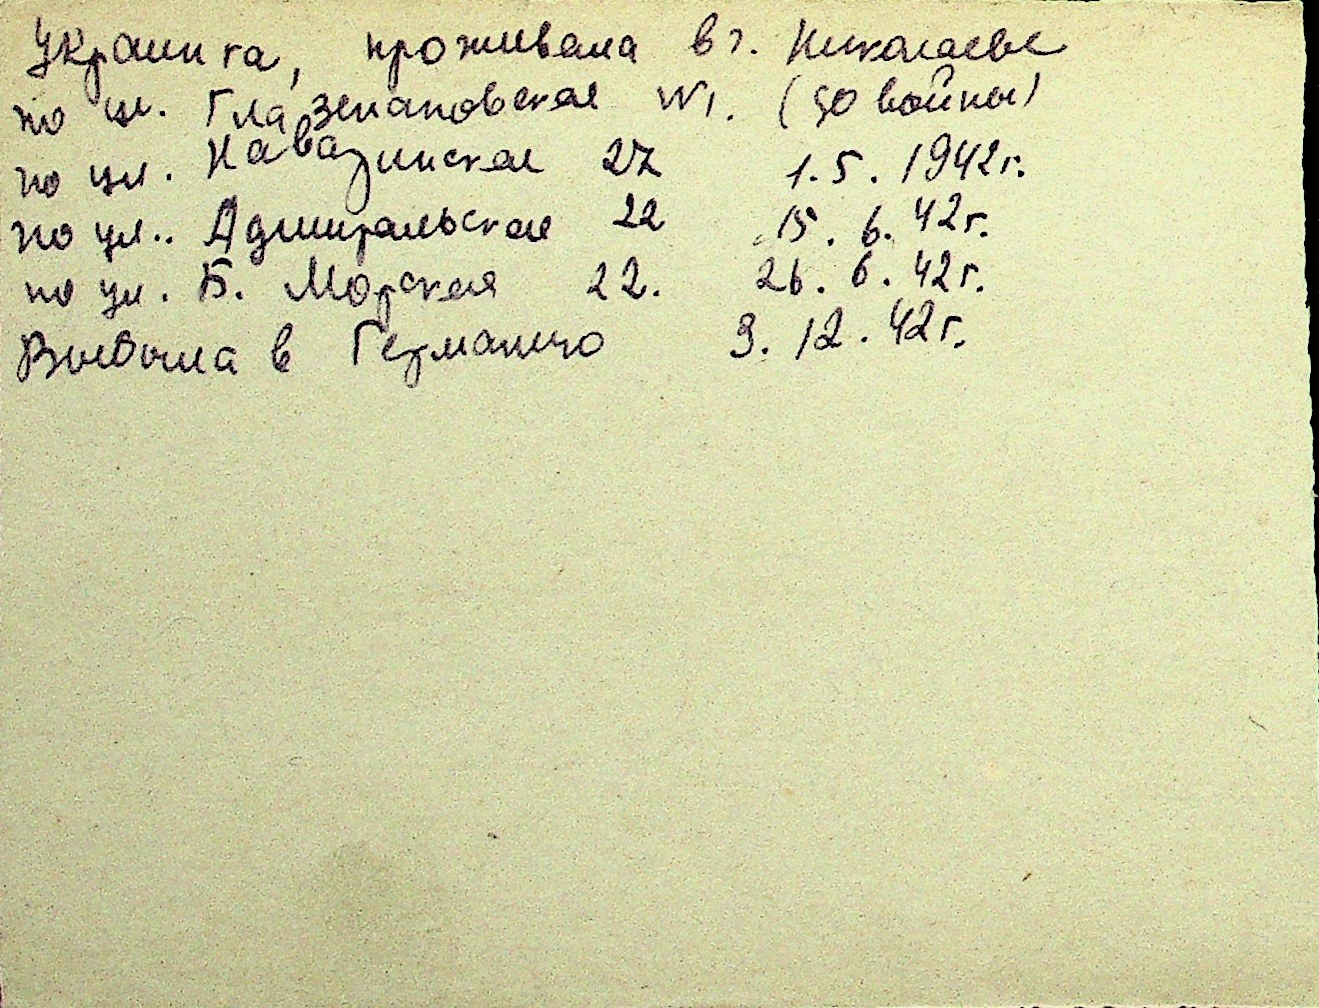 Украинка, проживала в г. Николаеве
по ул. Глазенаповская №1. (до войны)
по ул. Наваринская 27 1.5.1942г.
по ул.. Адмиральская 22 15.6.42г.
по ул. Б. Морская 22. 26.6.42г.
Выбыла в Германию 9.12.42г.